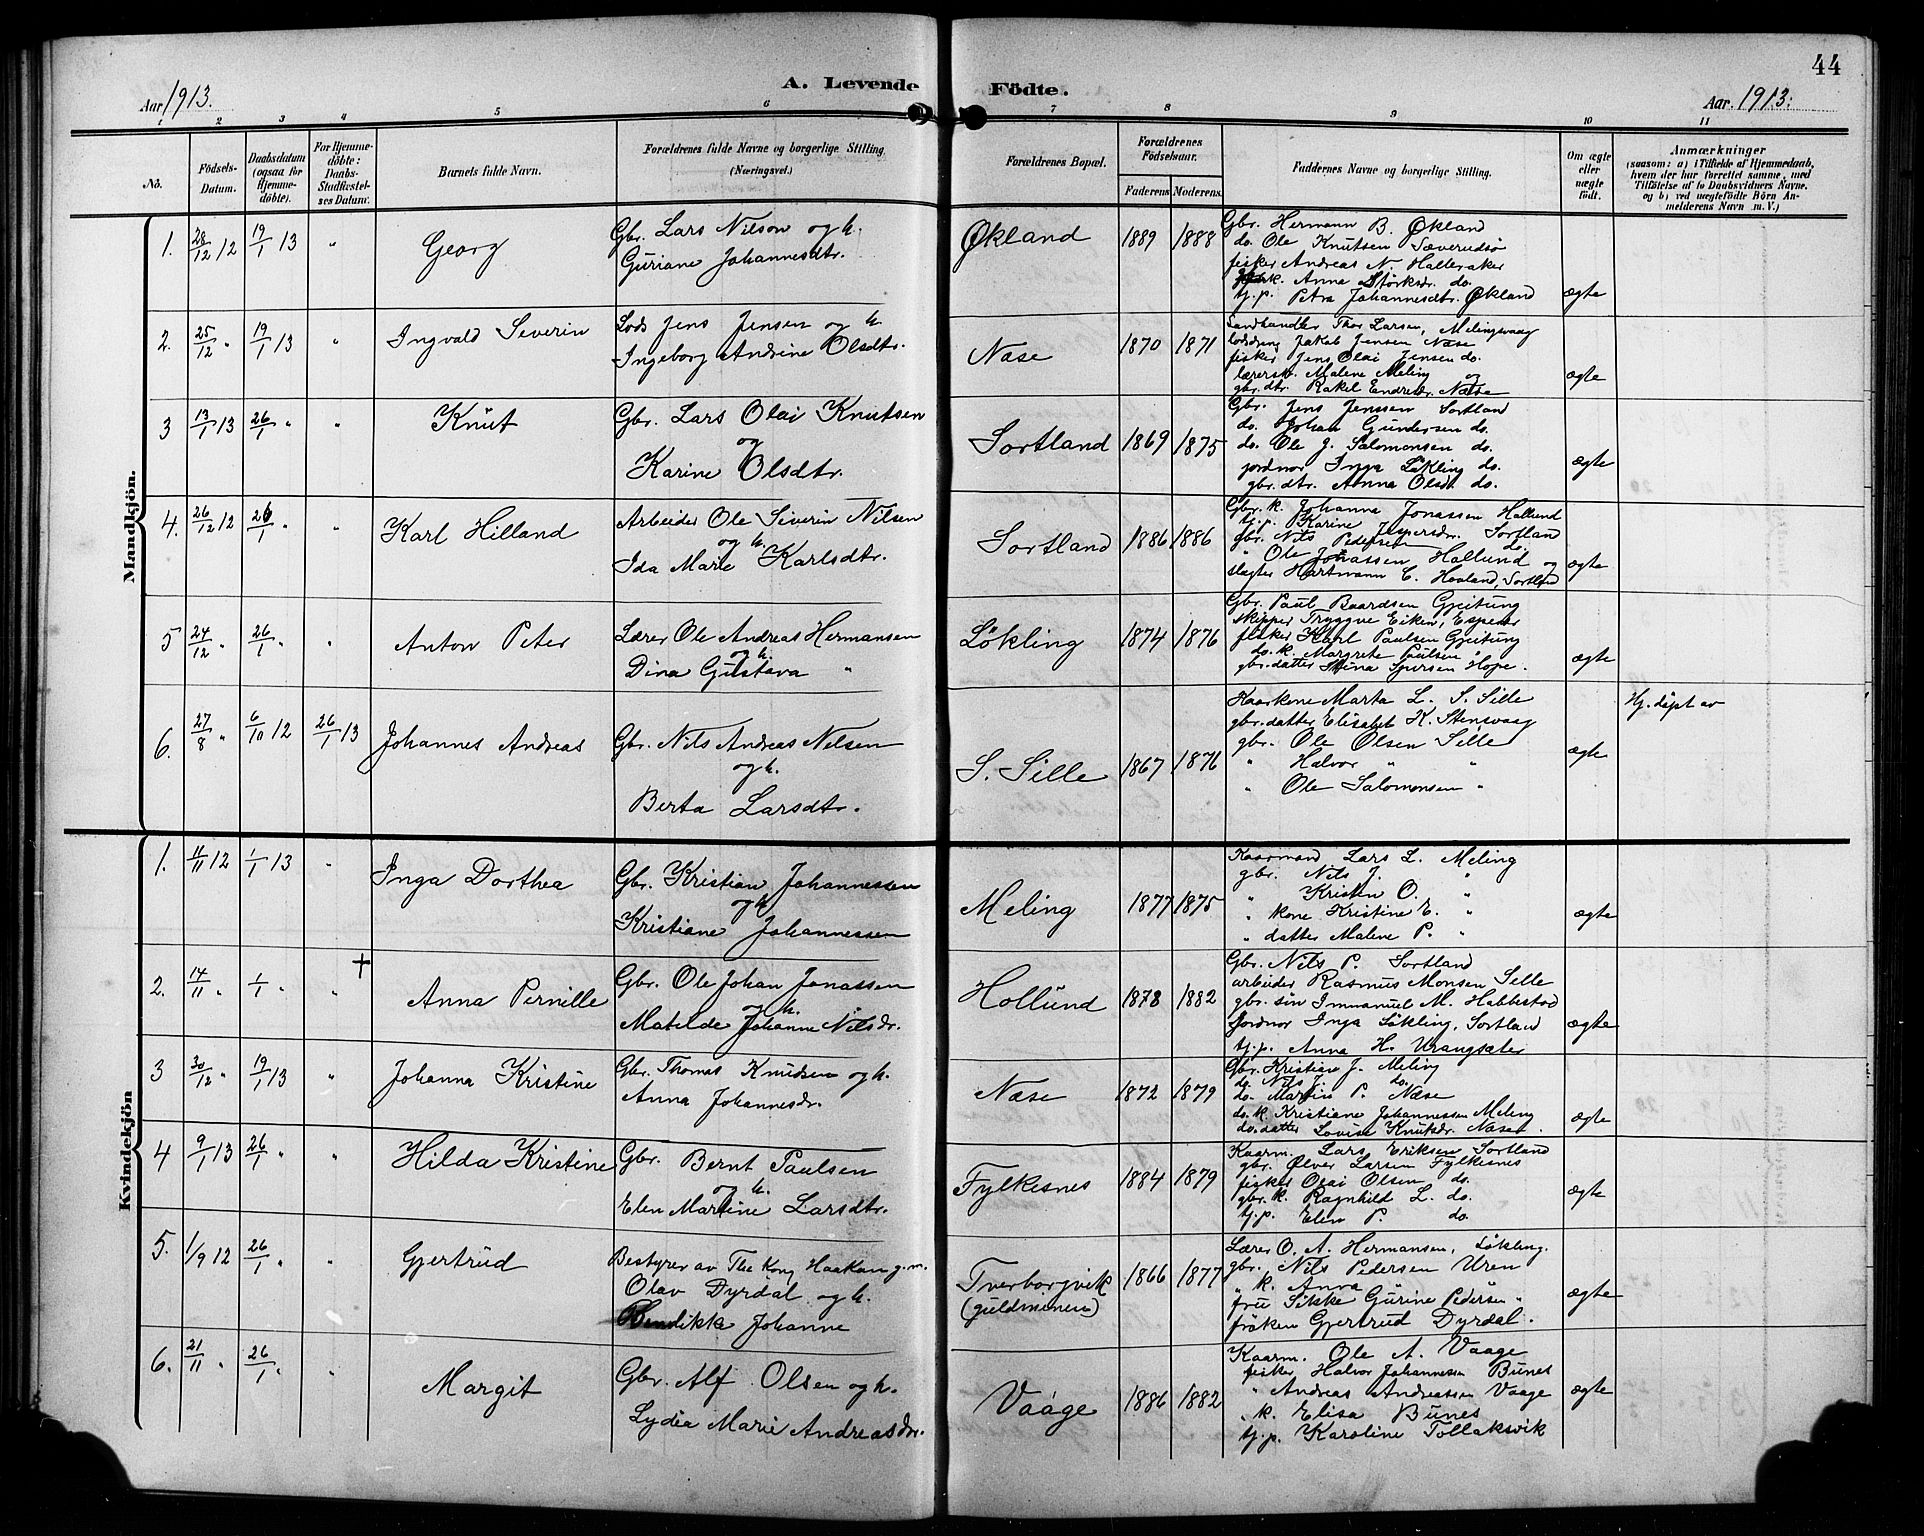 44
Aar 1913.
A. Levende
Födte.
Aar. 1913.
1 2 3 4 5 6 7 8 9 10 11
No.
Födsels-Datum.
Daabsdatum (ogsaa for Hjemme-döbte).
For Hjemme-döbte: Daabs-Stadfæstel-ses Datum.
Barnets fulde Navn.
Forældrenes fulde Navne og borgerlige Stilling (Næringsvei.)
Forældrenes Bopæl.
Forældrenes Födselsaar.
Faderens Moderens
Faddernes Navne og borgerlige Stilling.
Om ægte eller uægte født.
Anmærkninger
(saasom: a) i Tilfælde af Hjemmedaab, hvem der har forrettet samme, med Tilföielse af to Daabsvidners Navne, og b) ved uægtefödte Börn An-melderens Navn m. V.)
Mandkjön.
1. 28/12 12 19/1 13 " Georg
Gbr. Lars Nilsen og h.
Guriane Johannesdtr.
Økland 1889 1888
Gbr. Hermann B. Økland
do. Ole Knutsen Sæverudsø
fisker Andreas N. Halleraker
k. Anna Størksdr. do.
tj.p. Petra Johannesdtr. Økland
ægte
2. 25/12 " 19/1 13 " Ingvald Severin
Lods Jens Jensen og h.
Ingeborg Andrine Olsdtr.
Næse 1870 1871
Landhandler Thor Larsen, Melingsvaag
lodsdreng Jakob Jensen Næse
fisker Jens Olai Jensen do.
lærersk. Malene Meling og
gbr. dtr. Rakel Endresdr. Næse
ægte
3 13/1 13 26/1 " " Knut
Gbr. Lars Olai Knutsen
og
Karine Olsdtr.
Sortland 1869 1875
Gbr. Jens Jenssen Sortland
do. Johan Gundersen do.
do. Ole J. Salomonsen do.
jordmor Inga Løkling do.
gbr. dtr. Anna Olsdt. do.
ægte
4. 26/12 12 26/1 " " Karl Hilland
Arbeider Ole Severin Nilsen
og h.
Ida Marie Karlsdtr.
Sortland 1886 1886
Gbr. k. Johanna Jonassen Hallund
tj.p. Karine Jespersdr. Sortland
gbr. Nils Pedersen do.
" Ole Jonassen Hallund og
slagter Hartmann C. Haaland, Sortland
ægte
5 24/12 " 26/1 " " Anton Peter
Lærer Ole Andreas Hermansen
og h.
Dina Gustava "
Løkling 1874 1876
Gbr. Paul Baardsen Gjeitung
skipper Tryggve Eiken, Espevær
fisker Karl Paulsen Gjeitung
do. k. Margrete Paulsen "
gbr. datter Stina Sjursen Hope.
ægte
6. 27/8 " 6/10 12 26/1 13 Johannes Andreas
Gbr. Nils Andreas Nilsen
og h.
Berta Larsdtr.
S. Sille 1867 1871
Kaarkone Marta L. S. Sille
gbr. datter Elisabet K. Stensvaag
gbr. Ole Olsen Sille
" Halvor " "
" Ole Salomonsen "
ægte
Hj. døpt av
Kvindekjön
1. 11/11 12 1/1 13 " Inga Dorthea
Gbr. Kristian Johannessen
og h.
Kristiane Johannessen
Meling 1877 1875
Kaarmand Lars L. Meling
gbr. Nils J. "
" Kristen O. "
" kone Kristine E. "
" datter Malene P. "
ægte
2. 14/11 " 1/1 " " + Anna Pernille
Gbr. Ole Johan Jonassen
og h.
Matilde Johanne Nilsdr.
Hollund 1878 1882
Gbr. Nils P. Sortland
arbeider Rasmus Monsen Sille
gbr. søn Immanuel M. Habbestad
Jordmor Inga Løkling, Sortland
tj.p. Anna H. Urangsæter
ægte
3 30/12 " 19/1 13 " Johanna Kristine
Gbr. Thomas Knudsen og h.
Anna Johannesdr.
Næse 1872 1879
Gbr. Kristian J. Meling
do. Nils J. do.
do. Martin P. Næse
do. k. Kristiane Johannessen Meling
do. datter Lovise Knutsdr. Næse.
ægte
4 9/1 13 26/1 " " Hilda Kristine
Gbr. Bernt Paulsen
og h.
Elen Martine Larsdtr.
Fylkesnes 1884 1879
Kaarm. Lars Eriksen Sortland
gbr. Ølver Larsen Fylkesnes
fisker Olai Olsen do.
gbr. k. Ragnhild L. do.
tj.p. Elen P. do.
ægte
5. 1/9 12 26/1 " " Gjertrud
Bestyrer av The Kong Haakon g.m.
Olav Dyrdal og h.
Bendikke Johanne
Tverborgvik
(guldminen)
1866 1877
Lærer O. A. Hermansen, Løkling.
gbr. Nils Pedersen Uren
" k. Anna "
fru Sikke Gurine Pedersen "
frøken Gjertrud Dyrdal.
ægte
6. 21/11 " 26/1 " " Margit
Gbr. Alf Olsen og h.
Lydia Marie Andreasdr.
Vaage 1886 1882
Kaarm. Ole A. Vaage
fisker Halvor Johannessen Bunes
" Andreas Andreassen Vaage
" k. Elisa Bunes
tj.p. Karoline Tollaksvik
ægte